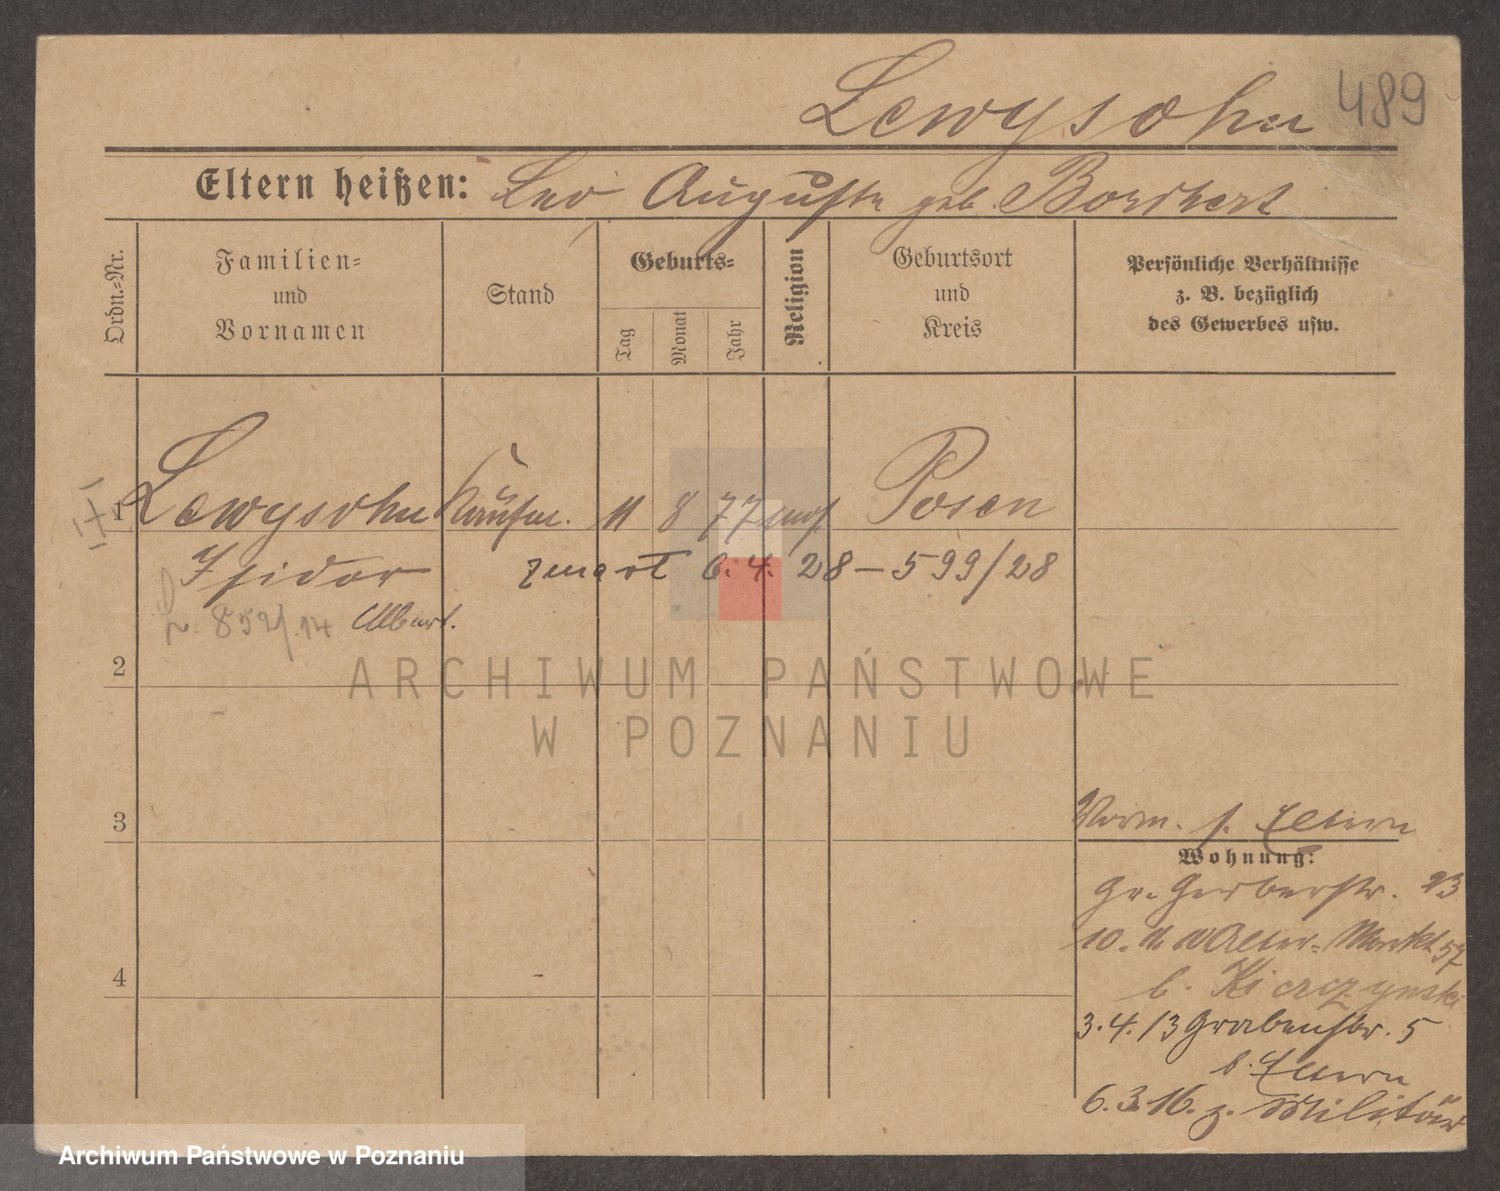 Lewysohn 489
Eltern heißen: Leo Auguste geb. Borchert
Ordn.-Nr.
Familien-
und
Vornamen
Stand
Geburts-
Tag
Monat
Jahr
Religion
Geburtsort
und
Kreis
Persönliche Verhältnisse
z. B. bezüglich
des Gewerbes usw.
1 Lewysohn Kaufm. 11 8 77 mos. Posen
Isidor zmarł 6. 4. 28 – 599/28
852/14 Albert.
2
3
4
Vorm. s. Eltern
Wohnung:
Gr. Gerberstr. 23
10. 11. 10 Alter-Markt 57
b. Kierczynski
3.4.13 Grabenstr. 5
b. Eltern
6.3.16. z. Militär
ARCHIWUM PAŃSTWOWE
W POZNANIU
Archiwum Państwowe w Poznaniu